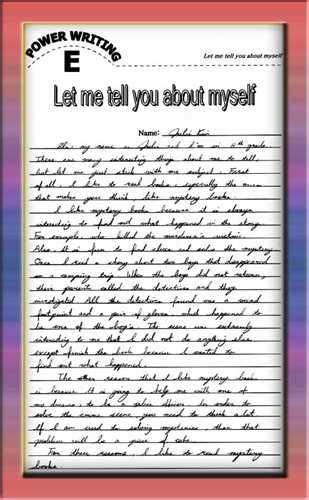 POWER WRITING
E
Let me tell you about myself
Let me tell you about myself
Name: Julie Kim
my name is Julie and I'm in 11th grade.
There are many interesting things about me to tell,
but let me just stick with one subject. First
of all, I like to read books, especially the ones
that makes you think, like mystery books.
I like mystery books, because it is always
interesting to find out what happened in the story.
For example, who killed the murderer's victim.
Also, it is fun to find clues and solve the mystery.
Once I read a story about two boys that disappeared
on a camping trip. When the boys did not return,
their parents called the detectives and they
investigated. All the detectives found was a
footprint and a pair of gloves, which happened to
be one of the boy's. The scene was extremely
interesting to me that I did not do anything else
except finish the book because I wanted to
find out what happened.
The other reason that I like mystery books
is because it is going to help me with one of
my dreams, to be a police officer. In order to
solve the crime scene, you need to think a lot.
If I am used to solving mysteries, then that
problem will be a piece of cake.
For these reasons, I like to read mystery
books.